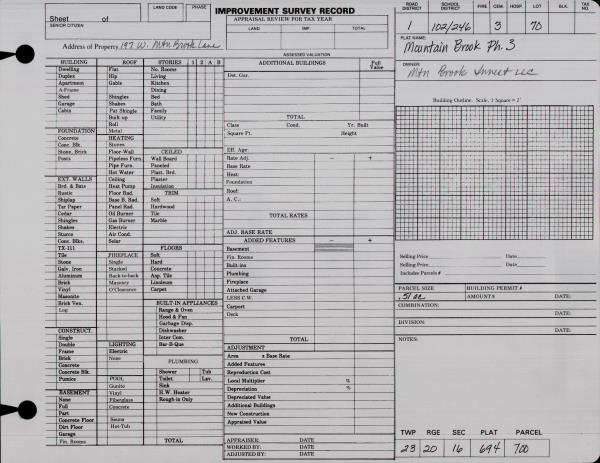 IMPROVEMENT SURVEY RECORD
Sheet of
SENIOR CITIZEN
LAND CODE PHASE
APPRAISAL REVIEW FOR TAX YEAR
LAND IMP. TOTAL
Address of Property 197 W. Mtn Brook Lane
ASSESSED VALUATION
ROAD DISTRICT SCHOOL DISTRICT FIRE CEM. HOSP. LOT BLK. TAX NO.
1 102/246 3 70
PLAT NAME:
Mountain Brook Ph. 3
OWNER:
Building Outline. Scale, 1 Square = 2'
BUILDING ROOF STORIES 1 2 A B
Dwelling Flat No. Rooms
Duplex Hip Living
Apartment Gable Kitchen
A-Frame Dining
Shed Shingles Bed
Garage Shakes Bath
Cabin Pat Shingle Family
Built up Utility
Roll
FOUNDATION Metal
Concrete HEATING
Conc. Blk. Stoves CEILED
Stone, Brick Floor-Wall Wall Board
Posts Pipeless Furn. Paneled
Pipe Furn. Plast. Brd.
Hot Water Plaster
EXT. WALLS Ceiling Insulation
Brd. & Bats Heat Pump
Rustic Floor Rad. TRIM
Shiplap Base B. Rad. Soft
Tar Paper Panel Rad. Hardwood
Cedar Oil Burner Tile
Shingles Gas Burner Marble
Shakes Electric
Stucco Air Cond.
Conc. Blks. Solar FLOORS
TX-111 Soft
Tile FIREPLACE Hard
Stone Single Concrete
Galv. Iron Stacked Asp. Tile
Aluminum Back-to-back Linoleum
Brick Masonry Carpet
Vinyl O'Clearance
Masonite
Brick Ven. BUILT-IN APPLIANCES
Log Range & Oven
Hood & Fan
Garbage Disp.
CONSTRUCT. Dishwasher
Single Inter Com.
Double LIGHTING Bar-B-Que
Frame Electric
Brick None PLUMBING
Concrete Shower Tub
Concrete Blk. Toilet Lav.
Pumice POOL Sink
Gunite H.W. Heater
BASEMENT Vinyl Rough-in Only
None Fiberglass
Full Concrete
Part
Concrete Floor Sauna
Dirt Floor Hot-Tub
Garage
Fin. Rooms TOTAL
ADDITIONAL BUILDINGS Full Value
Det. Gar.
TOTAL
Class Cond. Yr. Built
Square Ft. Height
Eff. Age:
Rate Adj. - +
Base Rate
Heat:
Foundation
Roof:
A. C.:
TOTAL RATES
ADJ. BASE RATE
ADDED FEATURES - +
Basement
Fin. Rooms
Built-ins
Plumbing
Fireplace
Attached Garage
LESS C.W.
Carport
Deck
TOTAL
ADJUSTMENT
Area x Base Rate
Added Features
Reproduction Cost
Local Multiplier %
Depreciation %
Depreciated Value
Additional Buildings
New Construction
Appraised Value
APPRAISER: DATE
WORKED BY: DATE
ADJUSTED BY: DATE
Selling Price Date
Selling Price Date
Includes Parcels #
PARCEL SIZE BUILDING PERMIT #
.51 ac AMOUNT $ DATE:
COMBINATION: DATE:
DIVISION: DATE:
NOTES:
TWP RGE SEC PLAT PARCEL
23 20 16 694 700